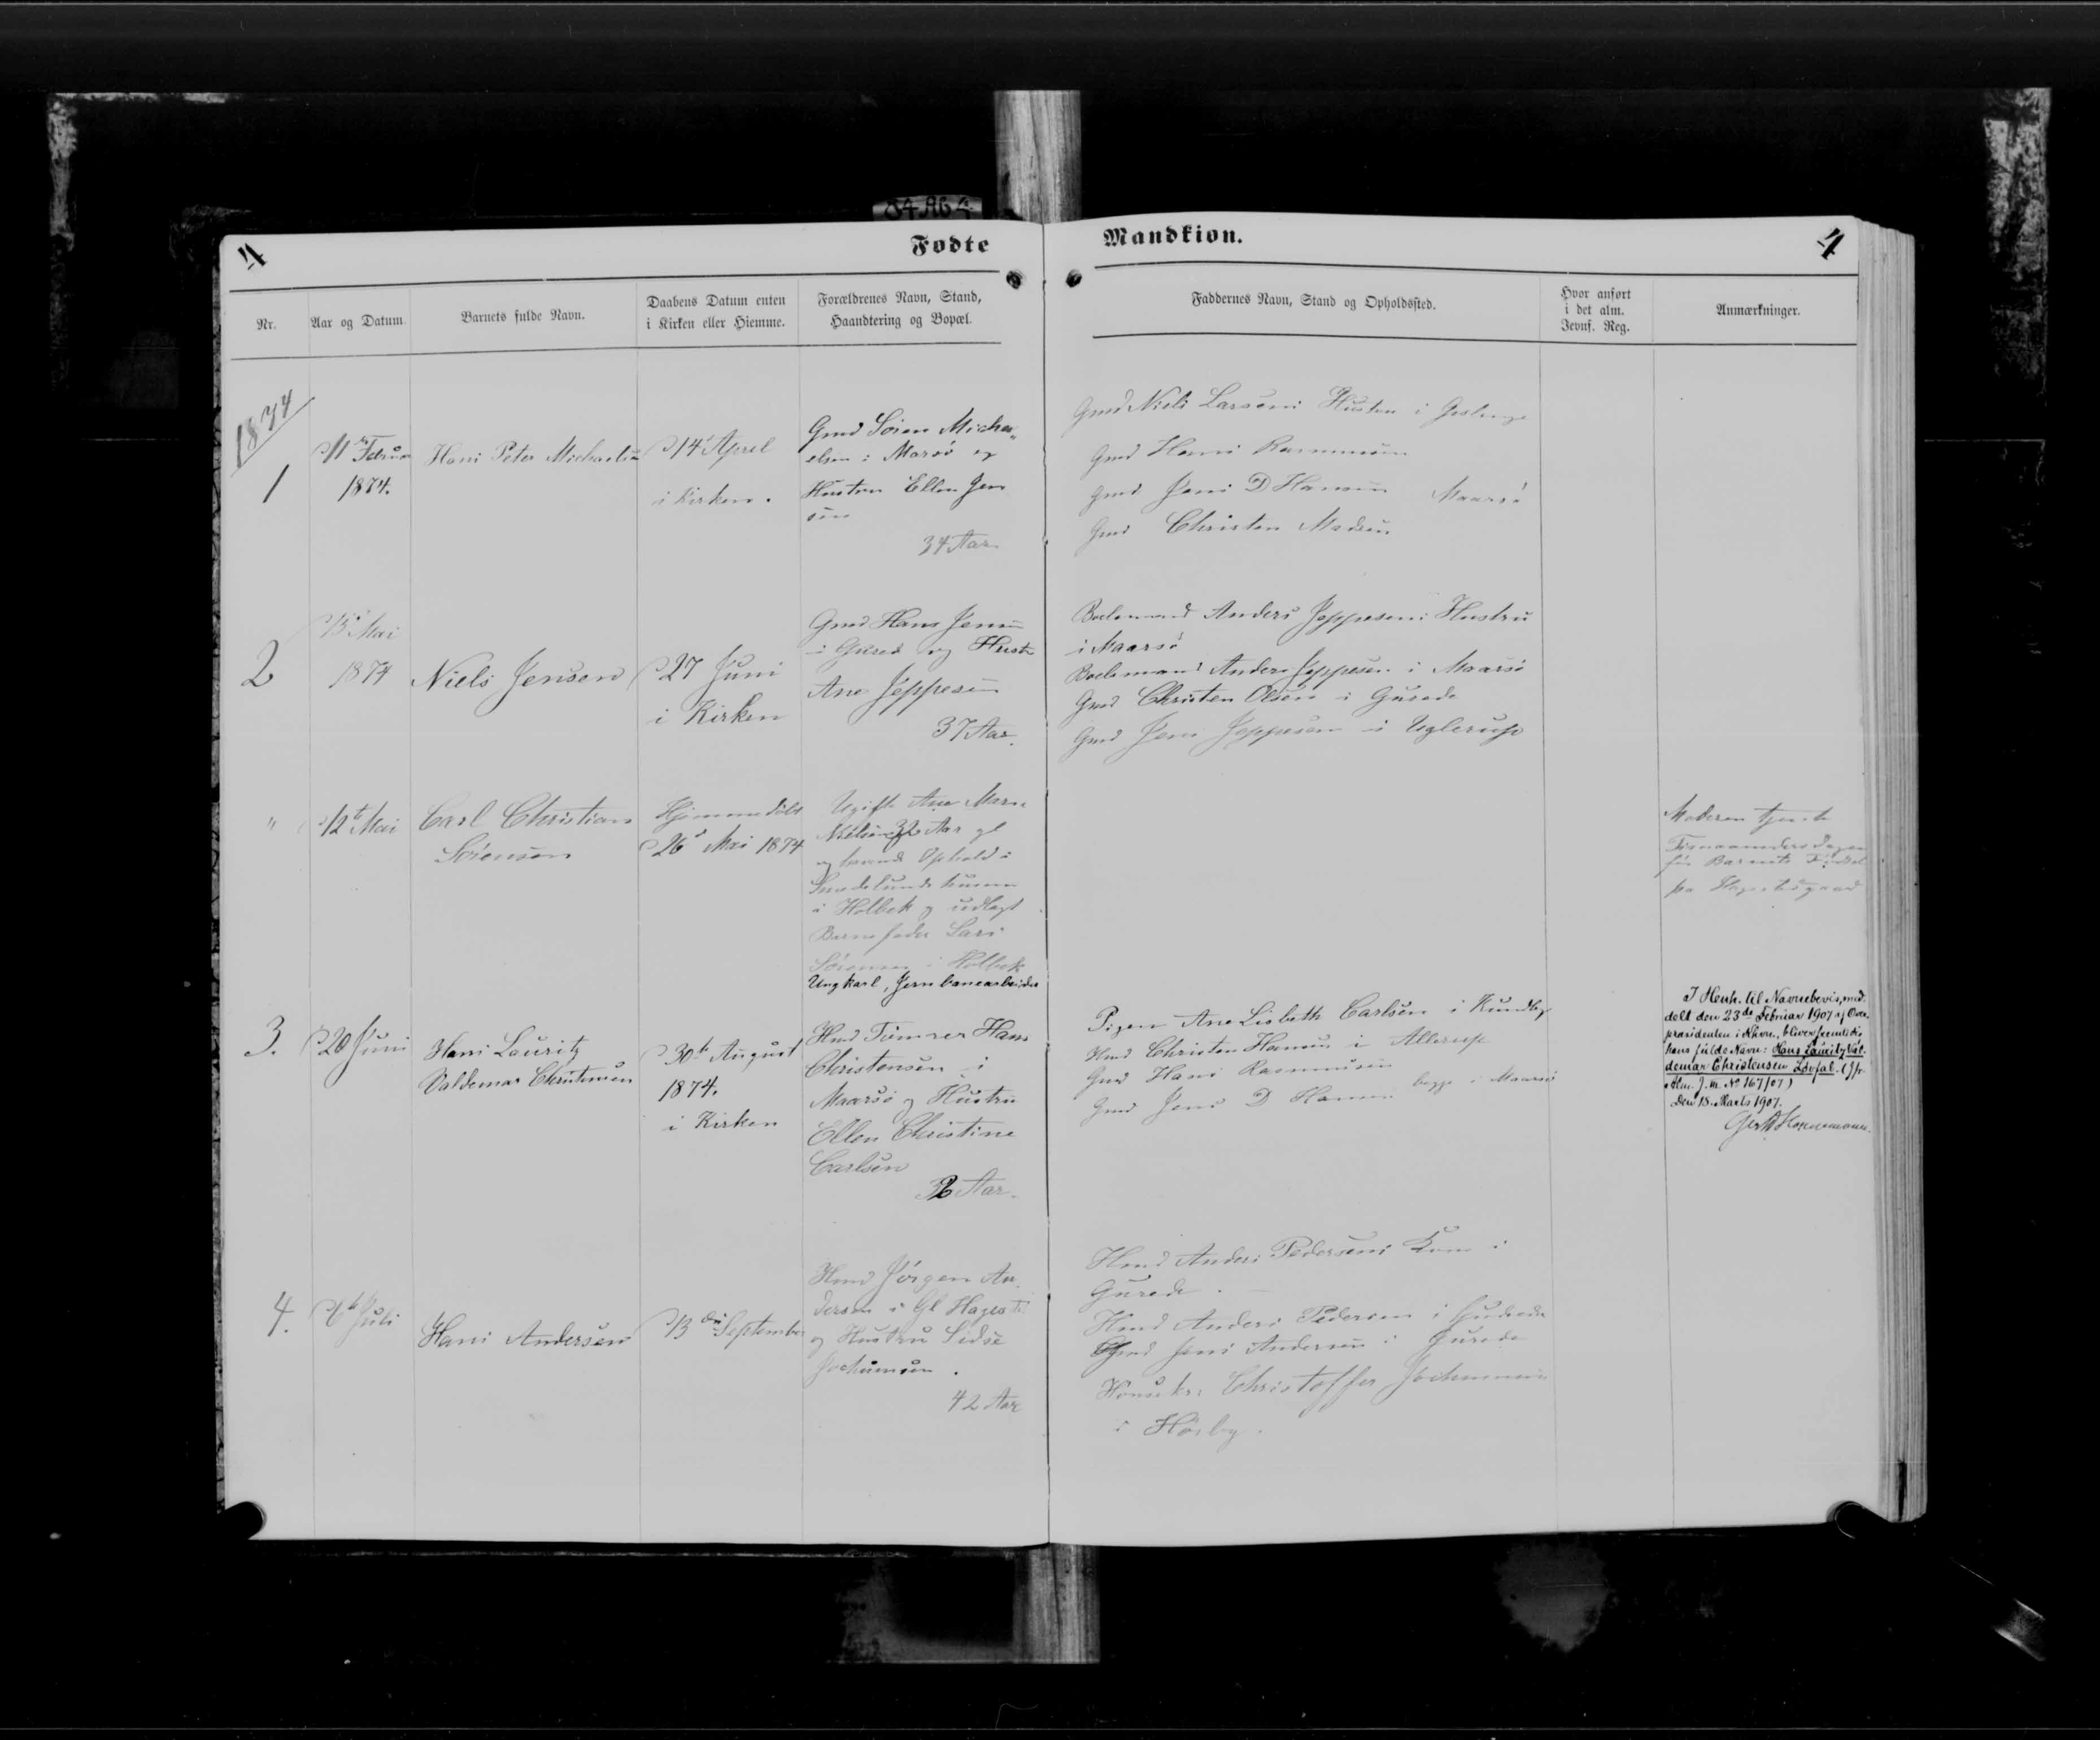 4
Fødte
Mandkion.
4
Nr.
Aar og Datum.
Barnets fulde Navn.
Daabens Datum enten
i Kirken eller Hiemme.
Forældrenes Navn, Stand,
Haandtering og Bopæl.
Faddernes Navn, Stand og Opholdssted.
Hvor anført
i det alm.
Jevnf. Reg.
Anmærkninger.
1874
1
11 Februar
1874.
Hans Peter Michaelsen
14 April
i Kirken.
Gmd Søren Micha
elsen i Marsø og
Hustru Ellen Jen
sen
34 Aar
Gmd Niels Larsens Hustru i
Gmd Hans Rasmussen
Gmd Jens D Hansen Maarsø
Gmd Christen Madsen
2
13 Mai
1874
Niels Jensen
27 Juni
i Kirken
Gmd Hans Jensen
i Gurede og Hustr
Ane Jeppesen
37 Aar.
Boelsmand Anders Jeppesens Hustru
i Maarsø
Boelsmand Anders Jeppesen i Maarsø
Gmd Christen Olsen i Gurede
Gmd Jens Jeppesen i Uglerup
"
12te Mai
Carl Christian
Sørensen
Hjemmedøbt
26 Mai 1874
Ugift Ane Marie
Nielsen 32 Aar gl
og havende Ophold i
i Holbek og udlagt
Barnefader Lars
Sørensen i Holbek
Ungkarl, Jernbanearbeider
Moderen tjente
før Barnets Fødsel
paa Hagestedgaard
3.
20 Juni
Hans Lauritz
Valdemar Christensen
30te August
1874.
i Kirken
Hmd Tømrer Hans
Christensen i
Maarsø og Hustru
Ellen Christine
Carlsen
Aar.
Pigen Ane Lisbeth Carlsen i Kundby
Hmd Christen Hansen i Allerup
Gmd Hans Rasmussen
Gmd Jens D Hansen begge i Maarsø
I Henh. til Navnebevis, med-
delt den 23de Februar 1907 af Over-
præsidenten i Khvn., bliver fremtidig
hans fulde Navn: Hans Lauritz Val-
demar Christensen Løvfal. (Jfr.
Alm. J. M. No 167/07)
Den 18. Marts 1907.
4.
6te Juli
Hans Andersen
13den September
Hmd Jørgen An
dersen i Gl Hagested
og Hustru Sidse
Jochumsen.
42 Aar
Hmd Anders Pedersens Kone i
Gurede.
Hmd Anders Pedersen i Gurede
Gmd Jens Andersen i Gurede
Christoffer Jochumsen
i Hørby.